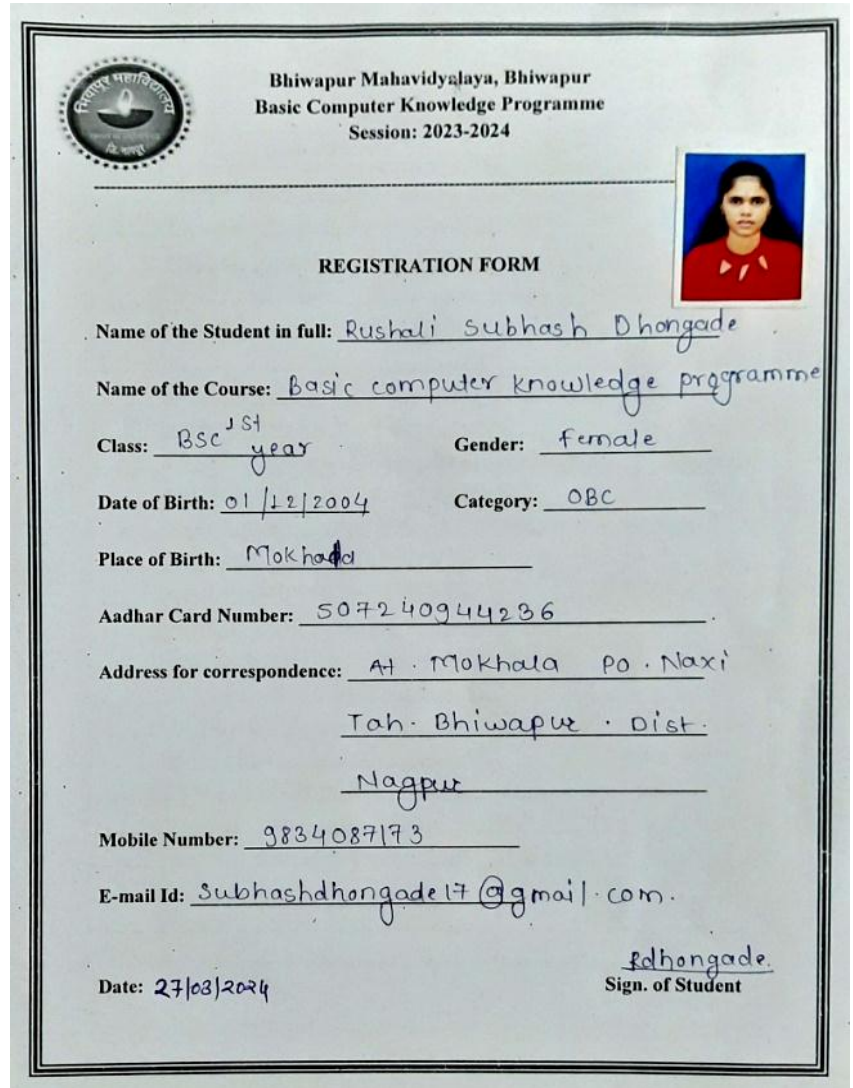 भिवापूर महाविद्यालय
Bhiwapur Mahavidyalaya, Bhiwapur
Basic Computer Knowledge Programme
Session: 2023-2024
REGISTRATION FORM
Name of the Student in full: Rushali Subhash Dhongade
Name of the Course: Basic computer knowledge programme
Class: BSC 1st year Gender: female
Date of Birth: 01/12/2004 Category: OBC
Place of Birth:
Aadhar Card Number: 507240944236
Address for correspondence: At. Mokhala PO. Naxi
Tah. Bhiwapur . Dist.
Nagpur
Mobile Number: 9834087173
E-mail Id: Subhashdhongade17@gmail.com.
Rdhongade.
Date: 27/03/2024 Sign. of Student